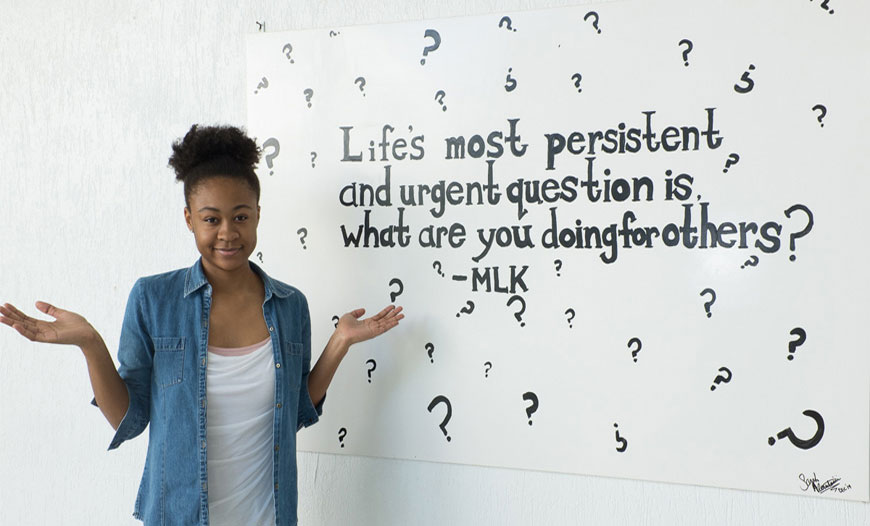 Life's most persistent
and urgent question is,
what are you doing for others?
-MLK